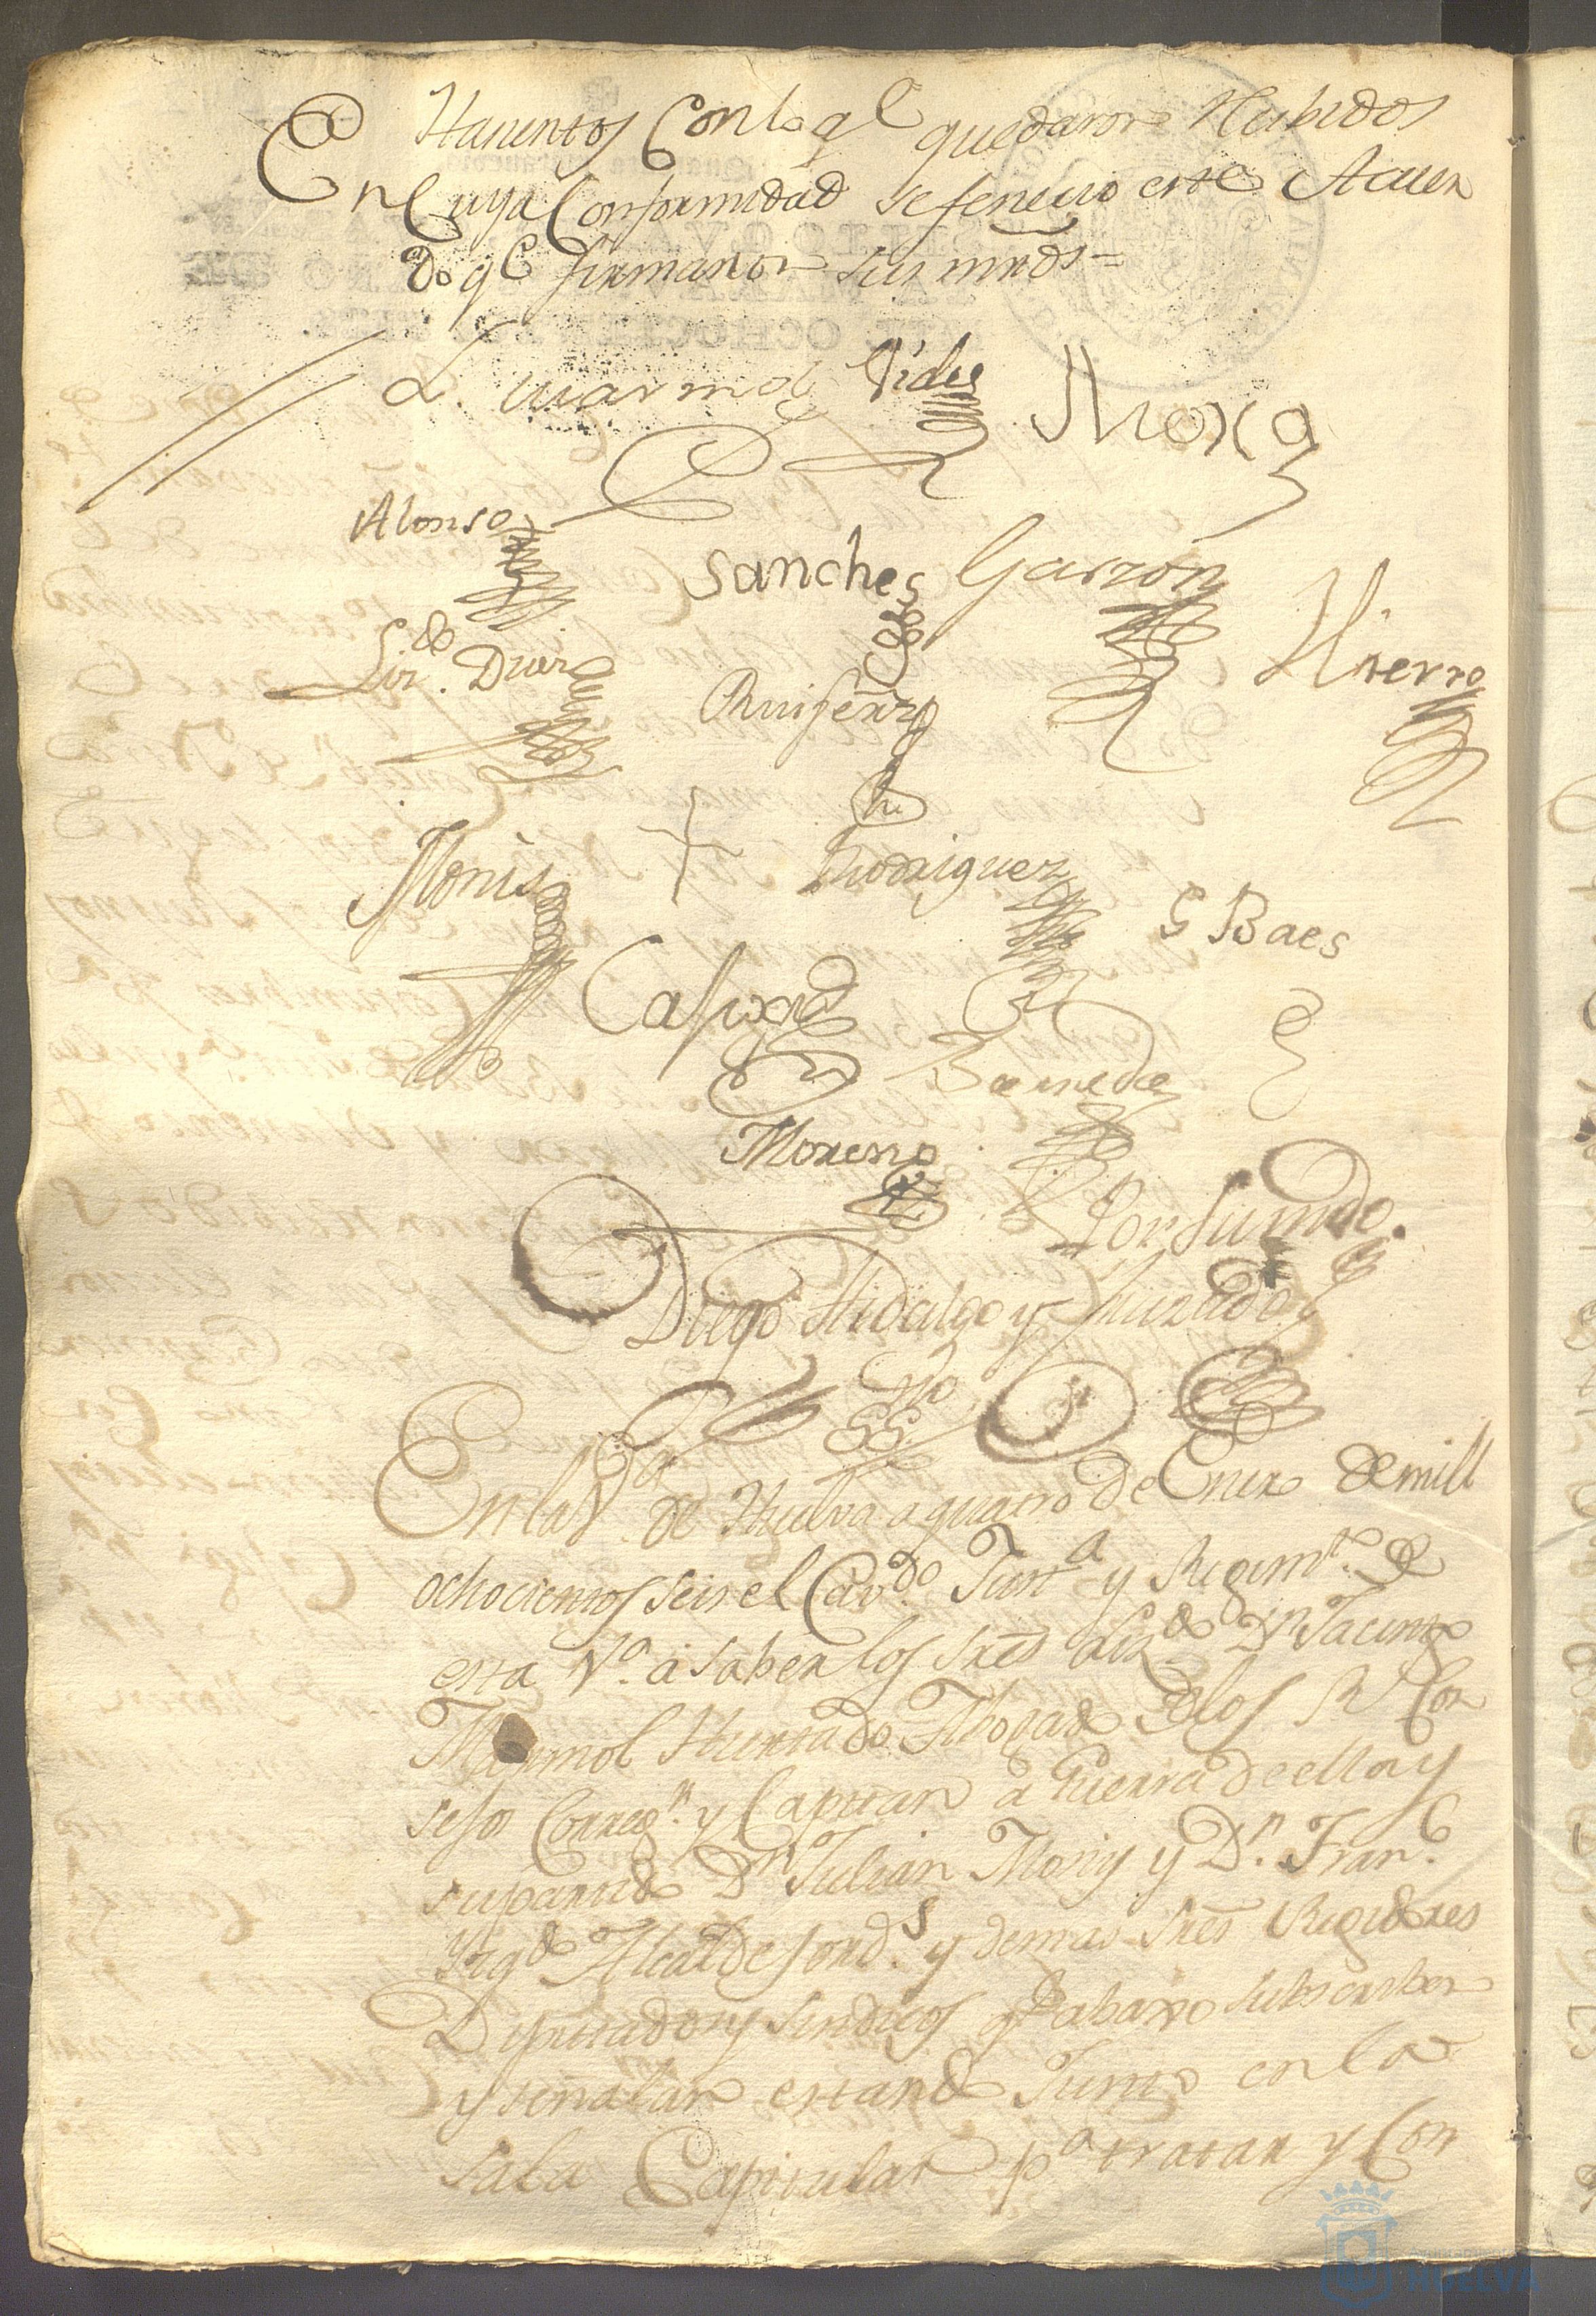 Asientos Con lo q.e quedaron Recibidos
En Cuya Conformidad se fenecio este Acuer
do q.e firmaron sus mrds=
L. Marmol Vides Mora
Alonso
Sanches Garzon
Hierro
Liz.do Diaz
Ruifernz
Monis
Rodriguez
G Baes
Moreno
Por su mdo.
Diego Hidalgo y Jurado
SS.no
En la V.a de Huelva a quatro de Enero de mill
ochocientos seis el Cav.do Just.a y Regim.to de
esta V.a á saber los Sres Liz.do Dn Jacinto
Marmol Hurtado Abogado de los R.s Con
sejos Correg.r y Capitan á Guerra de ella y
su partido Dn Julian Monis y D.n Fran.co
Alcaldes ord.s y demas Sres Regidores
Diputados y Sindicos q.e abaxo subscriben
y señalan estando Juntos en la
Sala Capitular p.a tratar y Con
HUELVA